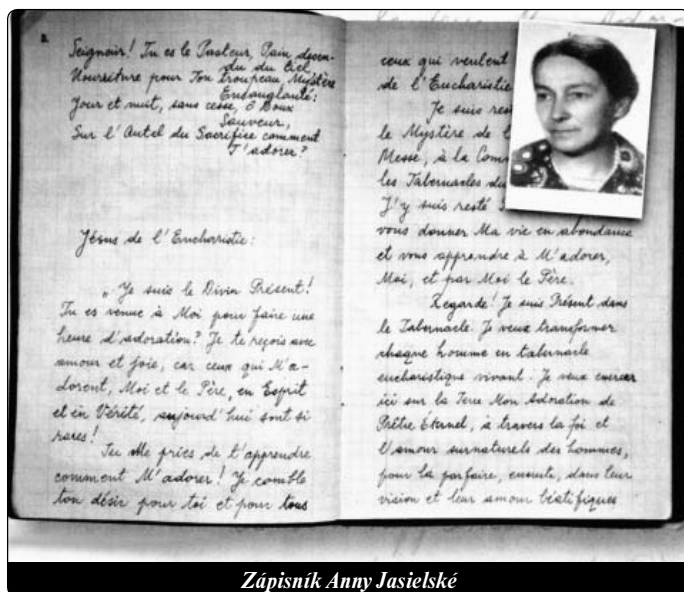 Seigneur! Tu es le Pasteur, Pain descen-
du du Ciel
Nourriture pour Ton troupeau, Mystère
Ensanglanté:
Jour et nuit, sans cesse, ô Doux
Sauveur,
Sur l'Autel du Sacrifice comment
T'adorer?
Jésus de l'Eucharistie:
„ Je suis le Divin Présent!
Tu es venue à Moi pour faire une
heure d'adoration? Je te reçois avec
amour et joie, car ceux qui M'a-
dorent, Moi et le Père, en Esprit
et en Vérité, aujourd'hui sont si
rares!
Tu Me pries de t'apprendre
comment M'adorer! Je comble
ton désir pour toi et pour tous
ceux qui veulent
de l'Eucharistie
Je suis
le Mystère de
Messe, à la
les Tabernacles
J'y suis resté
vous donner Ma vie en abondance
et vous apprendre à M'adorer,
Moi, et par Moi le Père.
Regarde! Je suis Présent dans
le Tabernacle. Je veux transformer
chaque homme en tabernacle
eucharistique vivant. Je veux exercer
ici sur la Terre Mon Adoration de
Prêtre Éternel, à travers la foi et
l'amour surnaturels des hommes,
pour la parfaire, ensuite, dans leur
vision et leur amour béatifiques
Zápisník Anny Jasielské